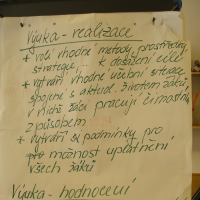 Výuka - realizace
+ volí vhodné metody, prostředky,
strategie... k dosažení cílů
+ vytváří vhodné učební situace
spojené s aktuál. životem žáků,
v nichž žáci pracují činnostním
způsobem
+ vytváří si podmínky pro
možnost uplatnění
všech žáků
Výuka - hodnocení